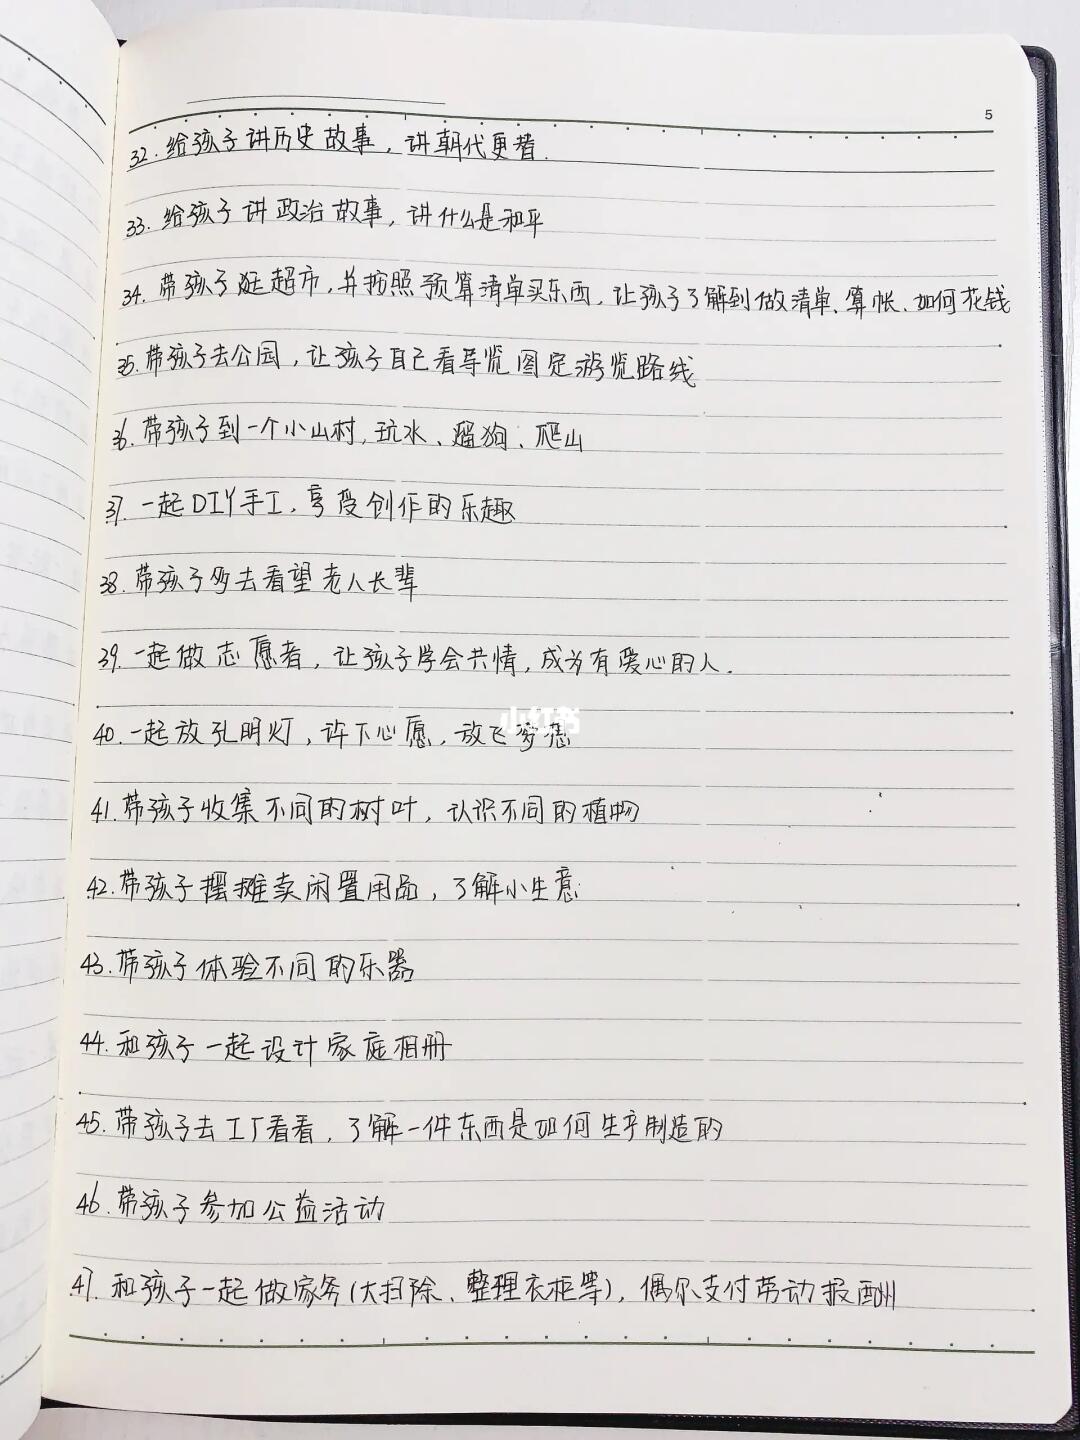 5
32. 给孩子讲历史故事，讲朝代更替.
33. 给孩子讲政治故事，讲什么是和平
34. 带孩子逛超市，并按照预算清单买东西，让孩子了解到做清单、算帐、如何花钱
35. 带孩子去公园，让孩子自己看导览图定游览路线
36. 带孩子到一个小山村，玩水、遛狗、爬山
37. 一起DIY手工，享受创作的乐趣
38. 带孩子多去看望老人长辈
39. 一起做志愿者，让孩子学会共情，成为有爱心的人.
40. 一起放孔明灯，许下心愿，放飞梦想
小红书
41. 带孩子收集不同的树叶，认识不同的植物
42. 带孩子摆摊卖闲置用品，了解小生意
43. 带孩子体验不同的乐器
44. 和孩子一起设计家庭相册
45. 带孩子去工厂看看，了解一件东西是如何生产制造的
46. 带孩子参加公益活动
47. 和孩子一起做家务(大扫除、整理衣柜等)，偶尔支付劳动报酬